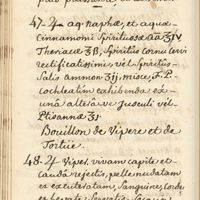 47. ♃ aq: naphæ, et aquæ
Cinnamomi Spirituosæ aā ʒIV
Theriacæ ʒß, Spiritus Cornu Cervi
rectificatissimi, vel Spiritus
Salis ammon: ʒij, misce, F. P.
cochleatim exhibenda ex
unâ alterâve Jusculi vel
Ptisannæ ʒI
Bouillon de Vipere et de
Tortüe.
48. ♃ Viper. vivam capite et
Caudâ rejectis, pelle nudatam
et exenteratam, Sanguine, Corde
et hepate Servatis